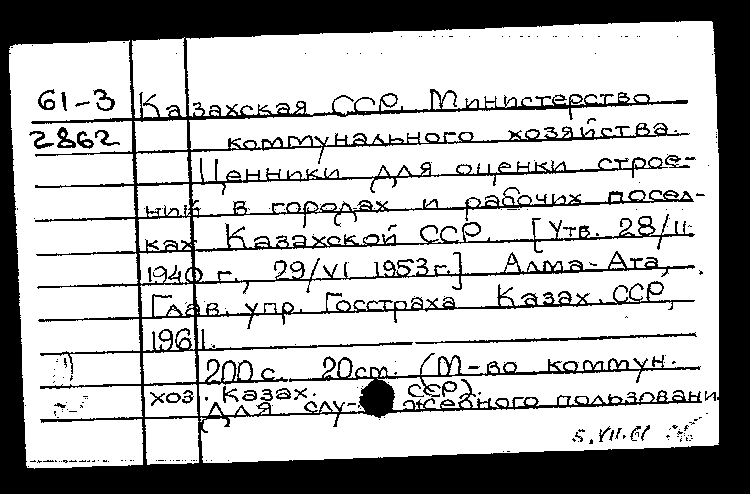 61-3 Казахская ССР. Министерство
2862 коммунального хозяйства.
Ценники для оценки строе-
ний в городах и рабочих посел-
ках Казахской ССР. [Утв. 28/II
1940 г., 29/VI 1953г.] Алма-Ата,
Глав. упр. Госстраха Казах. ССР,
1961.
200 с. 20см. (М-во коммун.
хоз. Казах. ССР).
Для служебного пользовани
5.VII.61